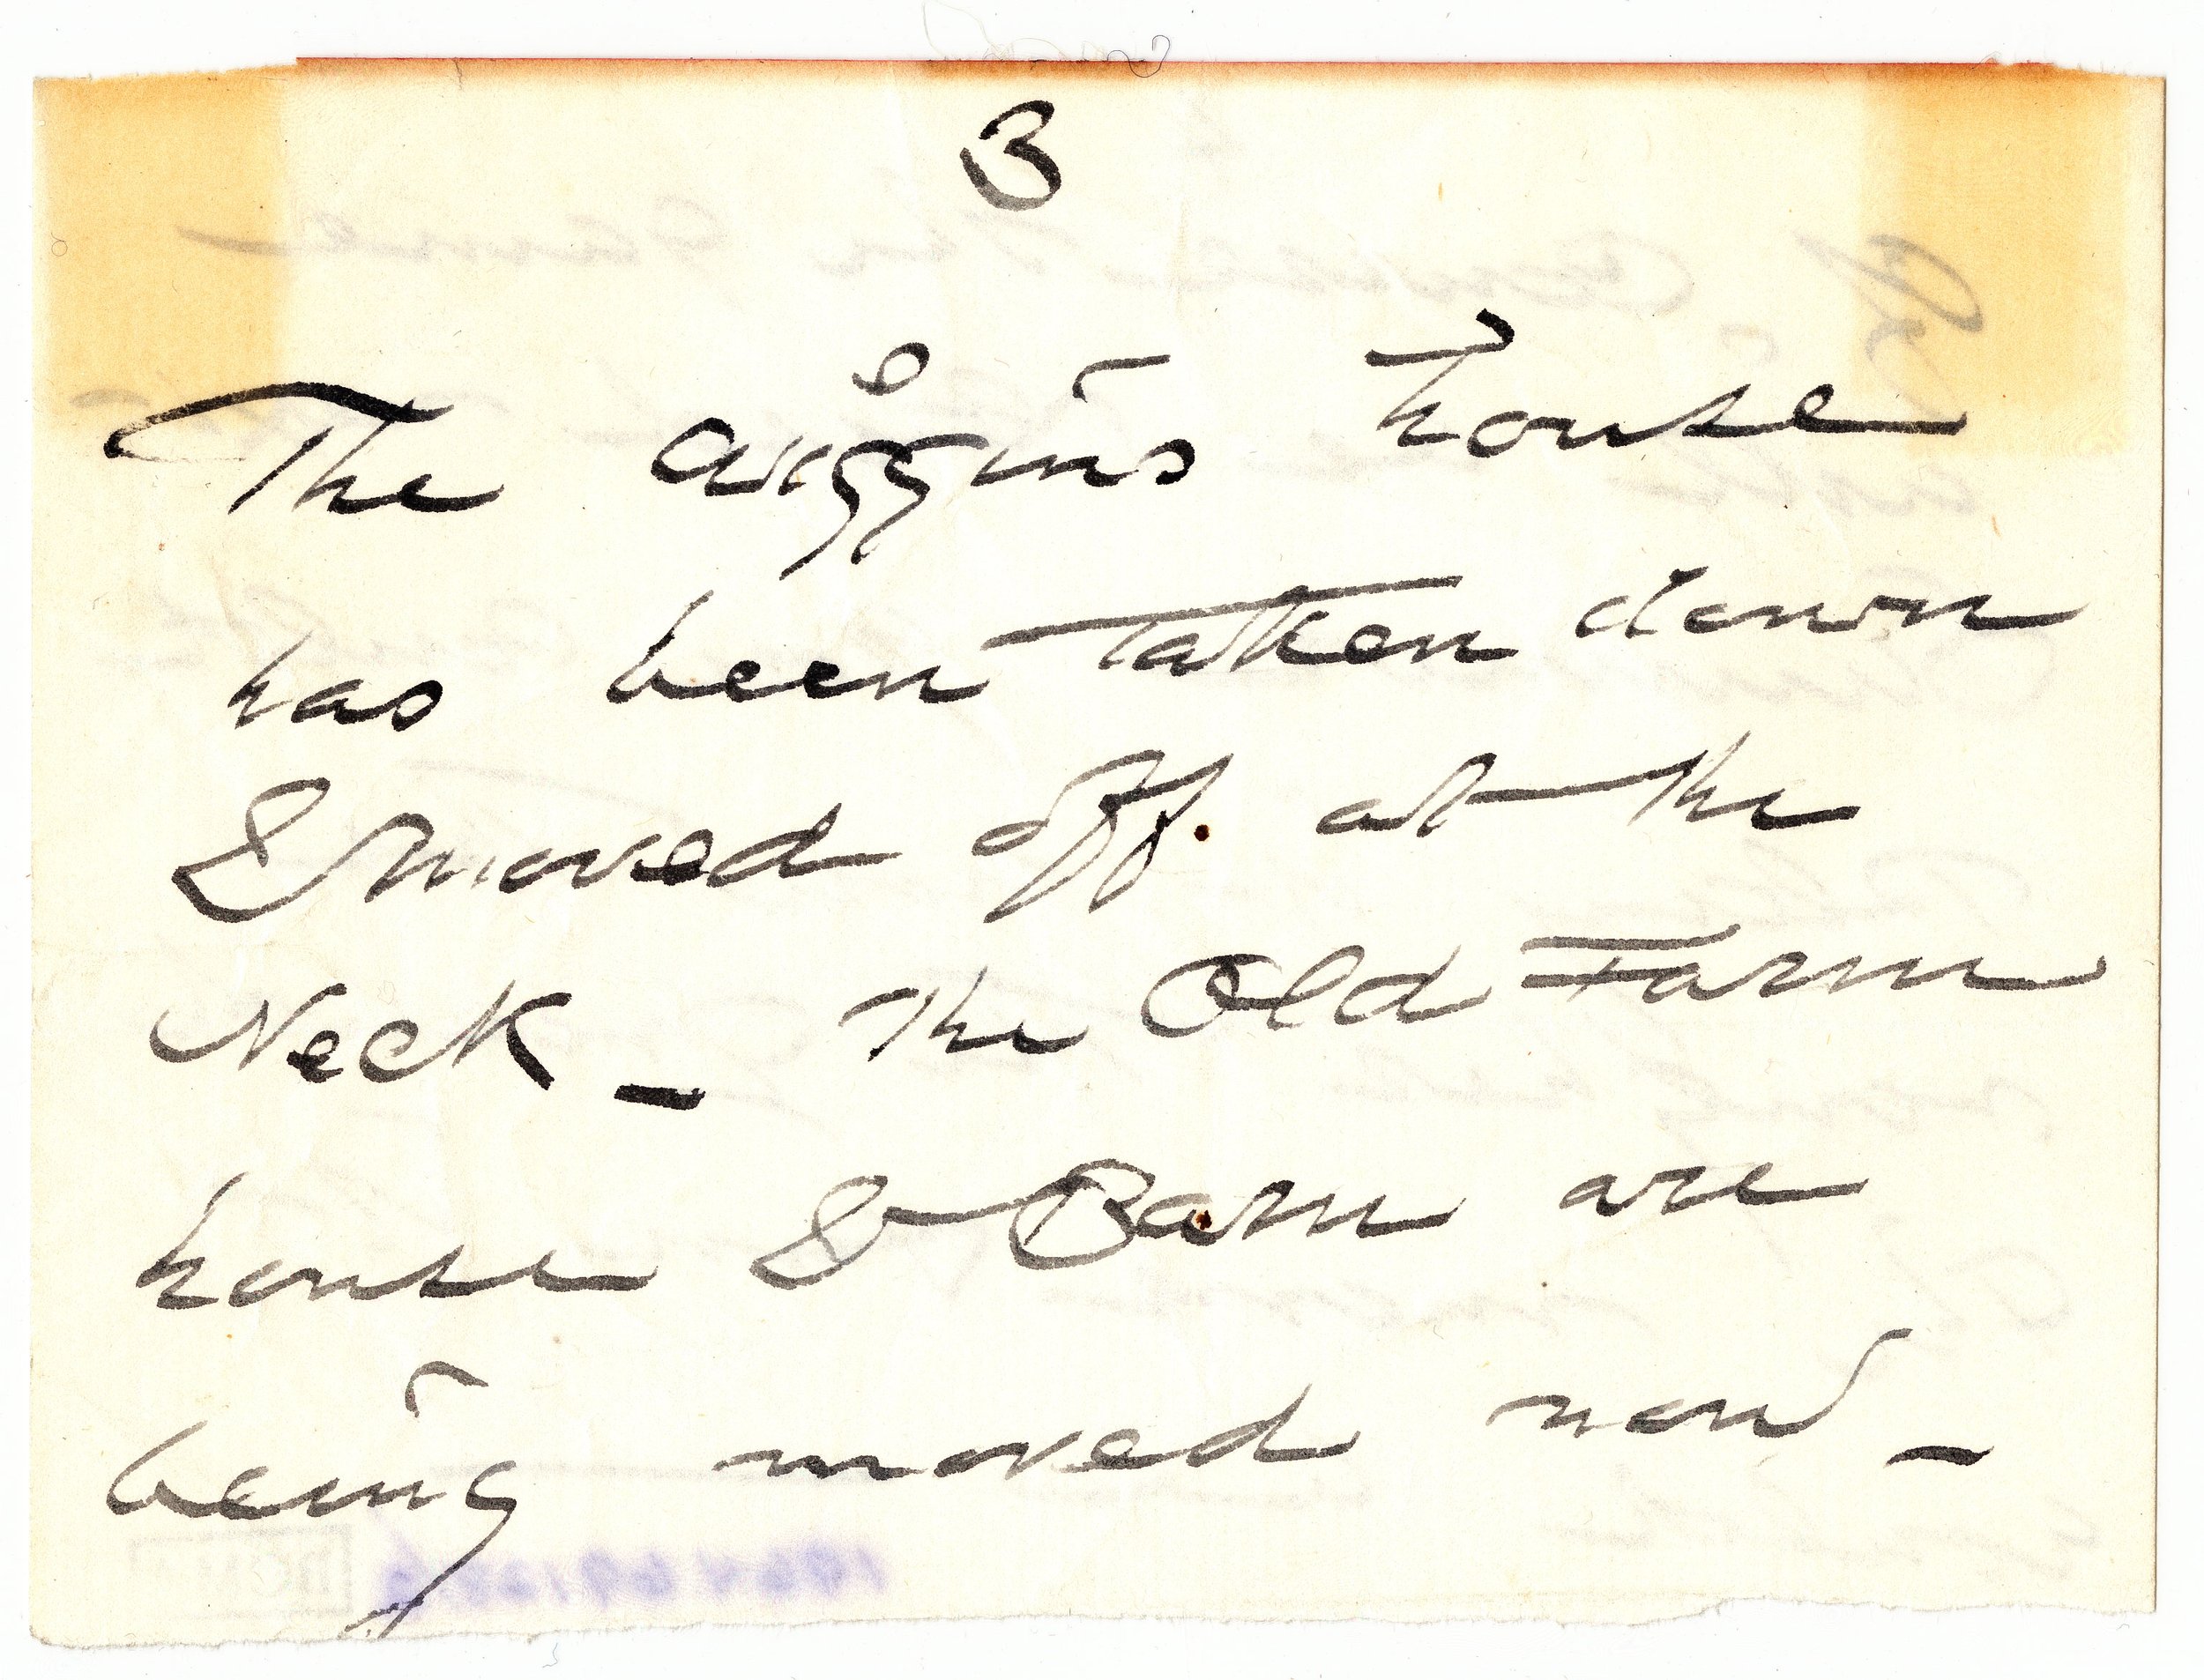 3
The Wiggins house
has been taken down
& moved off. at the
Neck – The Old Farm
house & Barn are
being moved now –